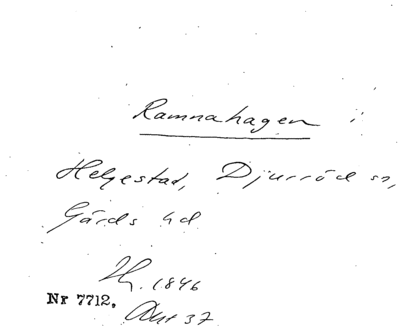 Ramnahagen i
Helgestad, Djurröd sn,
Gärds hd
1846
Nr 7712.
Akt 37